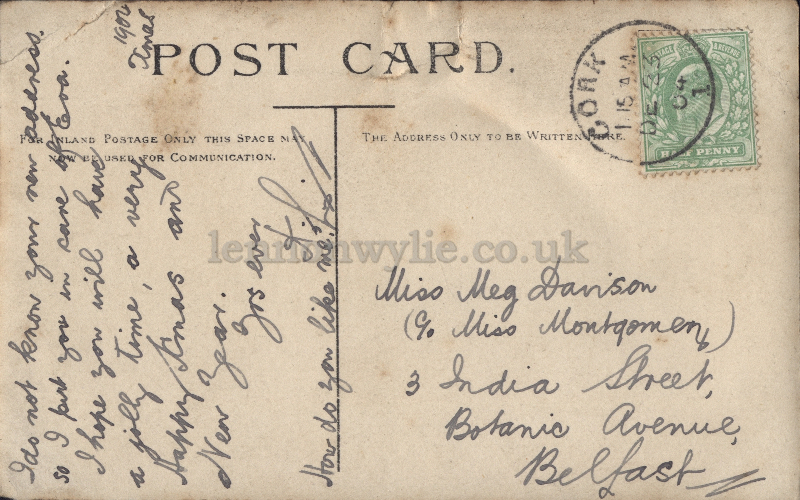 POST CARD.
FOR INLAND POSTAGE ONLY THIS SPACE MAY
NOW BE USED FOR COMMUNICATION.
THE ADDRESS ONLY TO BE WRITTEN HERE.
CORK
1.15 AM
DE 23
04
1
POSTAGE & REVENUE
HALF PENNY
Xmas
1904
I do not know your new address
so I put you in care of Eva.
I hope you will have
a jolly time, a very
Happy Xmas and
New Year.
Yrs ever
How do you like me?
Miss Meg Davison
(c/o Miss Montgomery)
3 India Street,
Botanic Avenue,
Belfast
lennonwylie.co.uk